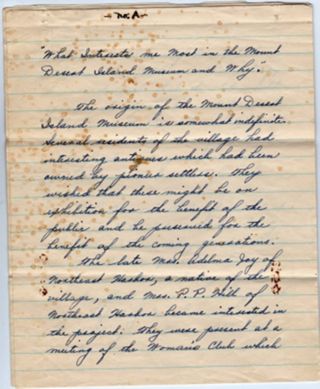 - No. A -
"What Interests me Most in the Mount
Desert Island Museum and Why."
The origin of the Mount Desert
Island Museum is somewhat indefinite.
Several residents of the village had
interesting antiques which had been
owned by pioneer settlers. They
wished that these might be on
exhibition for the benefit of the
public and be preserved for the
benefit of the coming generations.
The late Mrs. Adelma Joy of
Northeast Harbor, a native of the
village, and Mrs. P. P. Hill of
Northeast Harbor became interested in
the project; they were present at a
meeting of the Woman's Club which